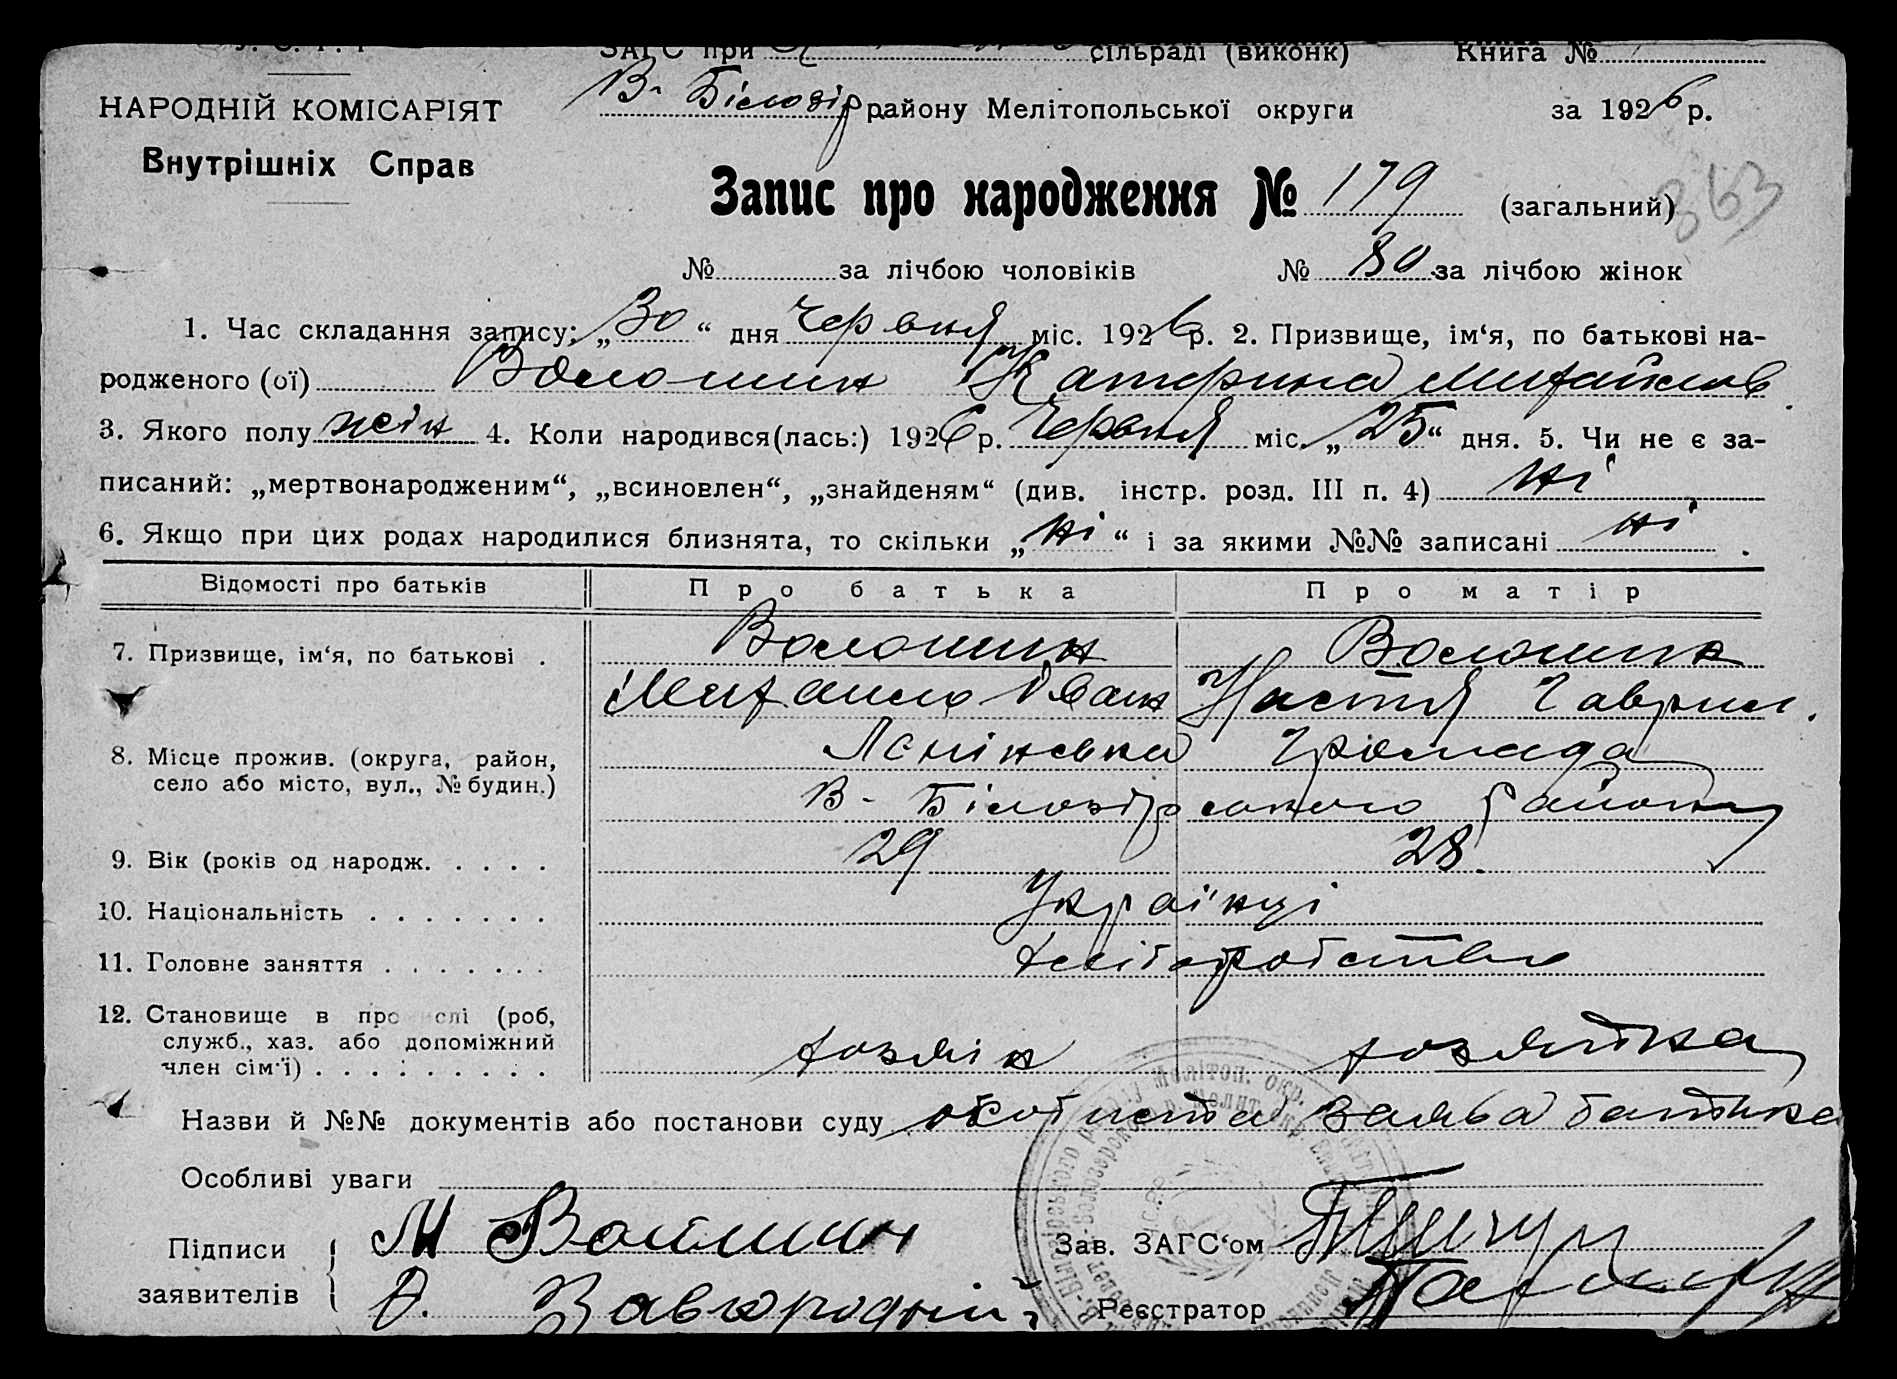 ЗАГС при сільраді (виконк) Книга №
НАРОДНІЙ КОМІСАРІЯТ В-Білозір району Мелітопольської округи за 1926 р.
Внутрішніх Справ
Запис про народження № 179 (загальний) 363
№ за лічбою чоловіків № 80 за лічбою жінок
1. Час складання запису: „30“ дня Червня міс. 1926 р. 2. Призвище, ім‘я, по батькові на-
родженого (ої) Волошин Катерина Михайлов
3. Якого полу жін 4. Коли народився(лась:) 1926 р. Червня міс. „25“ дня. 5. Чи не є за-
писаний: „мертвонародженим“, „всиновлен“, „знайденям“ (див. інстр. розд. III п. 4) ні
6. Якщо при цих родах народилися близнята, то скільки „ні“ і за якими №№ записані ні.
Відомості про батьків Про батька Про матір
7. Призвище, ім‘я, по батькові . Волошин Волошин
Михаило Іван Настя Гаврил.
8. Місце прожив. (округа, район, Ленінська Громада
село або місто, вул., № будин.) В-Білозірського району
9. Вік (років од народж. . . . . 29 28.
10. Національність . . . . . . . Українці
11. Головне заняття . . . . . . . хліборобство
12. Становище в про слі (роб,
служб., хаз. або допоміжний хозяін хозяйка
член сім‘ї) . . . . . . . . . .
Назви й №№ документів або постанови суду особиста заява батька
Особливі уваги
Підписи М Волошин Зав. ЗАГС‘ом
заявителів Завгородний Реєстратор